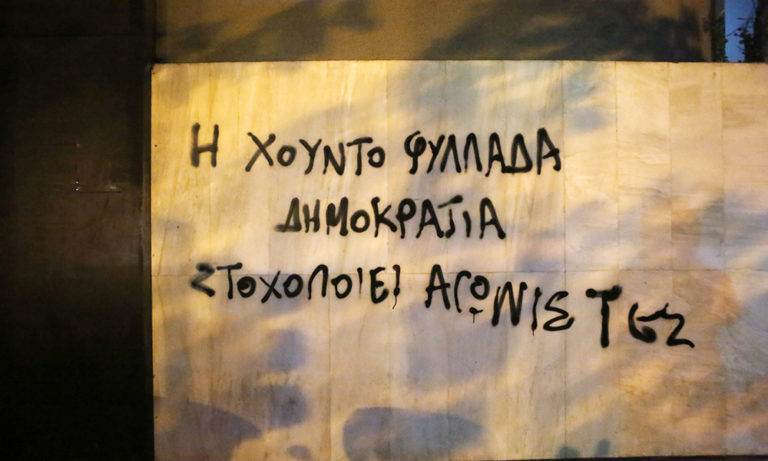 Η ΧΟΥΝΤΟ ΦΥΛΛΑΔΑ
ΔΗΜΟΚΡΑΤΙΑ
ΣΤΟΧΟΠΟΙΕΙ ΑΓΩΝΙΣΤΕΣ